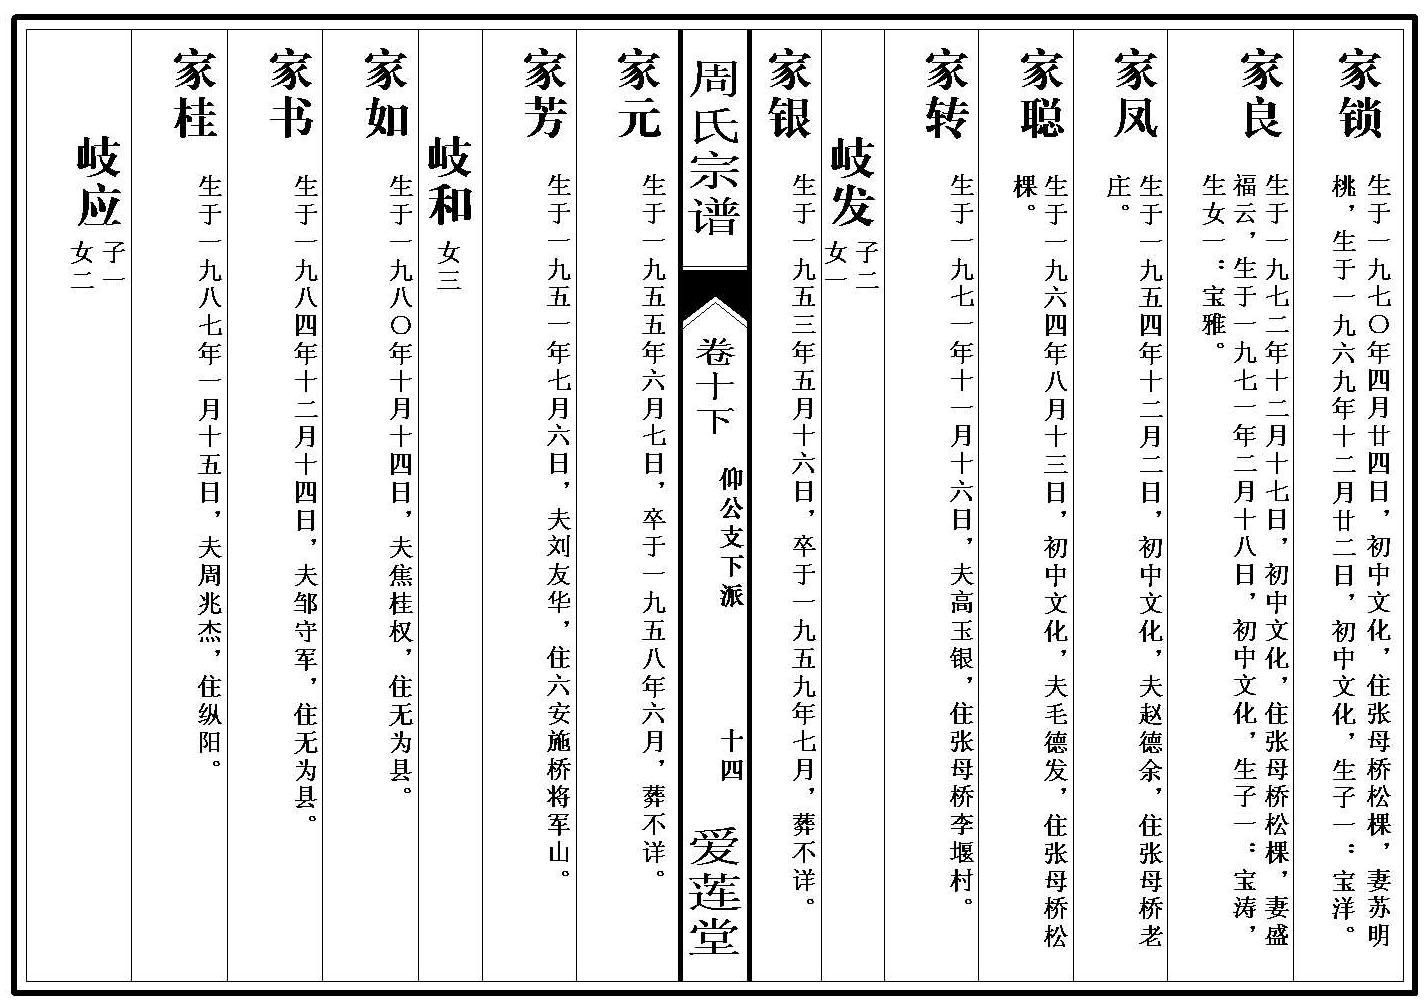 家锁
生于一九七〇年四月廿四日，初中文化，住张母桥松棵，妻苏明
桃，生于一九六九年十二月廿二日，初中文化，生子一：宝洋。
家良
生于一九七二年十二月十七日，初中文化，住张母桥松棵，妻盛
福云，生于一九七一年二月十八日，初中文化，生子一：宝涛，
生女一：宝雅。
家凤
生于一九五四年十二月二日，初中文化，夫赵德余，住张母桥老
庄。
家聪
生于一九六四年八月十三日，初中文化，夫毛德发，住张母桥松
棵。
家转
生于一九七一年十一月十六日，夫高玉银，住张母桥李堰村。
岐发
子二
女一
家银
生于一九五三年五月十六日，卒于一九五九年七月，葬不详。
周氏宗谱
卷十下
仰公支下派
十四
爱莲堂
家元
生于一九五五年六月七日，卒于一九五八年六月，葬不详。
家芳
生于一九五一年七月六日，夫刘友华，住六安施桥将军山。
岐和
女三
家如
生于一九八〇年十月十四日，夫焦桂权，住无为县。
家书
生于一九八四年十二月十四日，夫邹守军，住无为县。
家桂
生于一九八七年一月十五日，夫周兆杰，住纵阳。
岐应
子一
女二